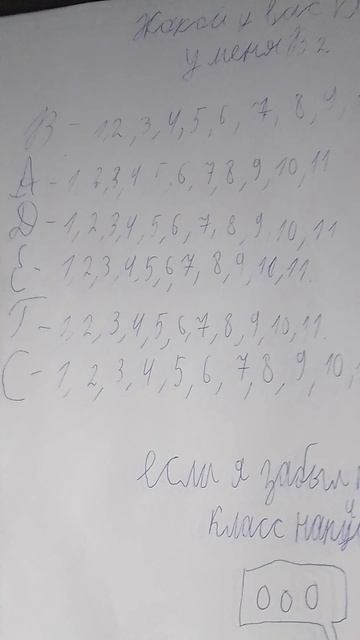 Какой у вас
у меня В: 2
В - 1 2, 3, 4, 5, 6, 7, 8, 9,
А - 1, 2, 3, 4, 5, 6, 7, 8, 9, 10, 11
Д - 1, 2, 3, 4, 5, 6, 7, 8, 9, 10, 11
Е - 1, 2, 3, 4, 5, 6, 7, 8, 9, 10, 11.
Г - 1, 2, 3, 4, 5, 6, 7, 8, 9, 10, 11.
С - 1, 2, 3, 4, 5, 6, 7, 8, 9, 10,
если я забыл
класс напи
000